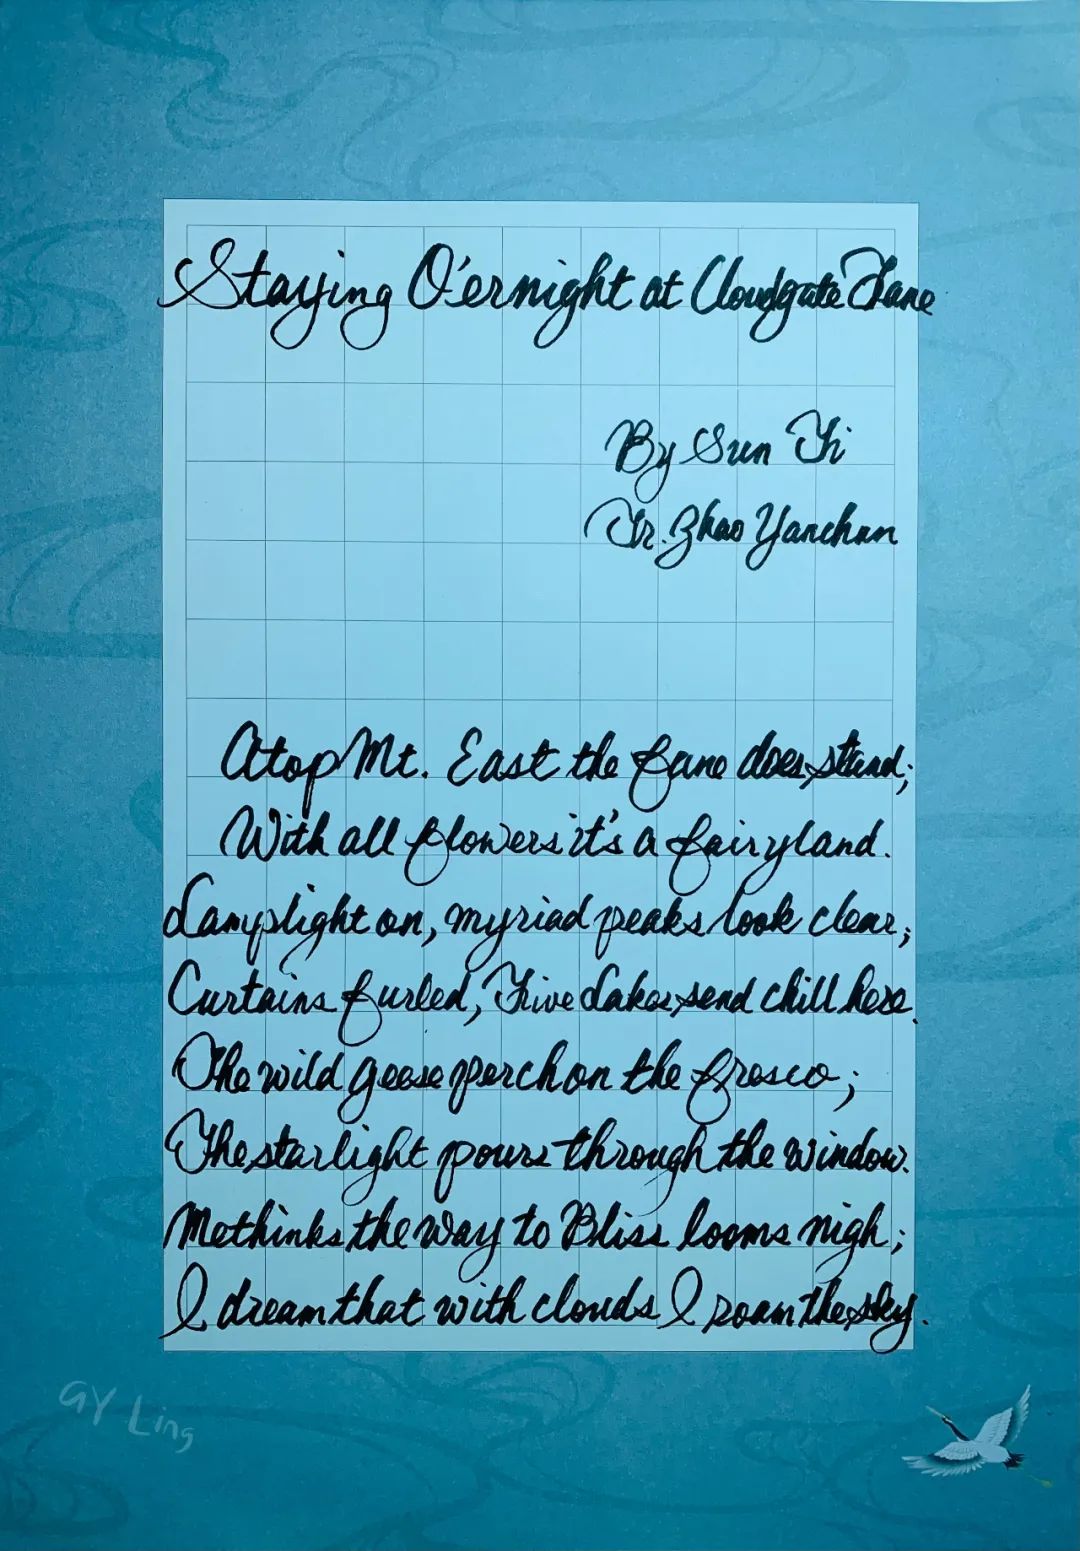 Staying O'ernight at Cloudgate Fane
By Sun Ti
Tr. Zhao Yanchun
Atop Mt. East the fane does stand;
With all flowers it's a fairyland.
Lamplight on, myriad peaks look clear;
Curtains furled, Five Lakes send chill here.
The wild geese perch on the fresco;
The starlight pours through the window.
Methinks the way to Bliss looms nigh;
I dream that with clouds I roam the sky.
GY Ling